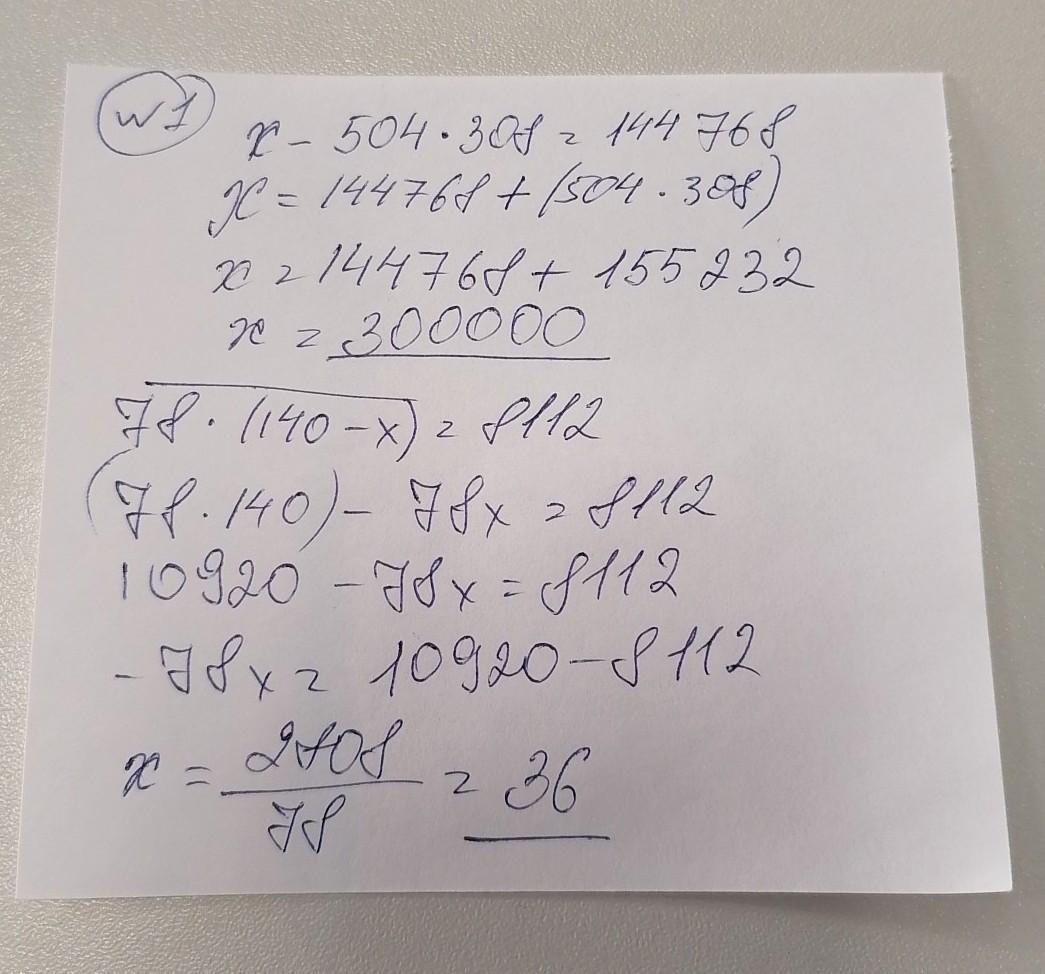 №1
x - 504 · 308 = 144 768
x = 144768 + (504 · 308)
x = 144768 + 155232
x = 300000
78 · (140 - x) = 8112
(78 · 140) - 78x = 8112
10920 - 78x = 8112
- 78x = 10920 - 8112
x = 2808/78 = 36